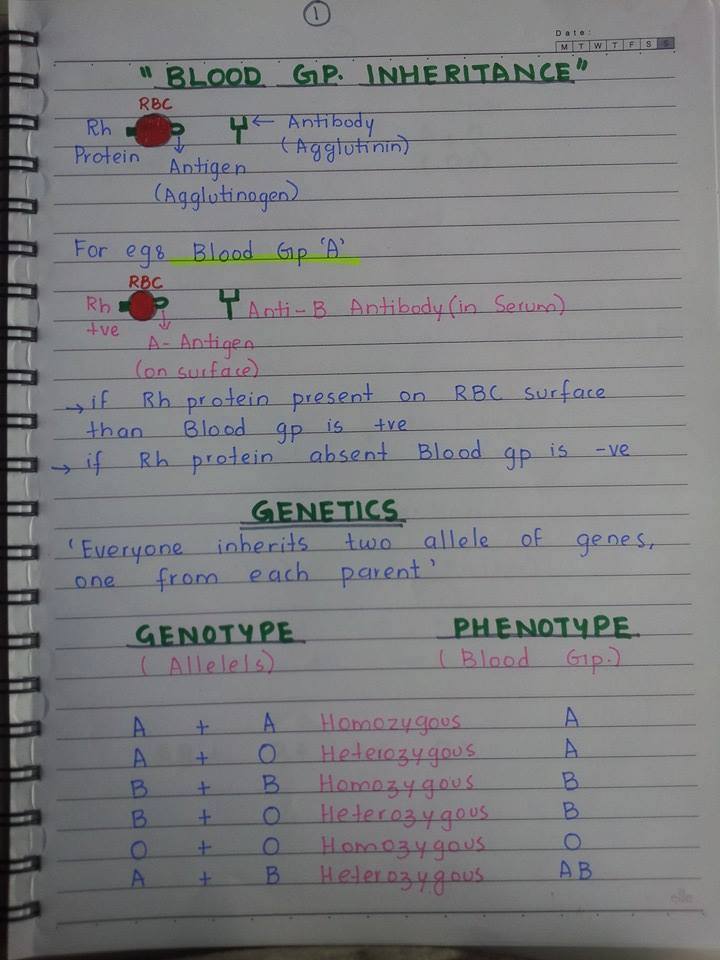 1
Date:
M T W T F S S
"BLOOD GP. INHERITANCE"
RBC
Rh Protein
Antibody
(Agglutinin)
Antigen
(Agglutinogen)
For eg8 Blood Gp 'A'
RBC
Rh +ve
Anti-B Antibody (in Serum)
A- Antigen
(on surface)
→ if Rh protein present on RBC surface
than Blood gp is +ve
→ if Rh protein absent Blood gp is -ve
GENETICS
'Everyone inherits two allele of genes,
one from each parent'
GENOTYPE PHENOTYPE
(Allelels) (Blood Gp.)
A + A Homozygous A
A + O Heterozygous A
B + B Homozygous B
B + O Heterozygous B
O + O Homozygous O
A + B Heterozygous AB